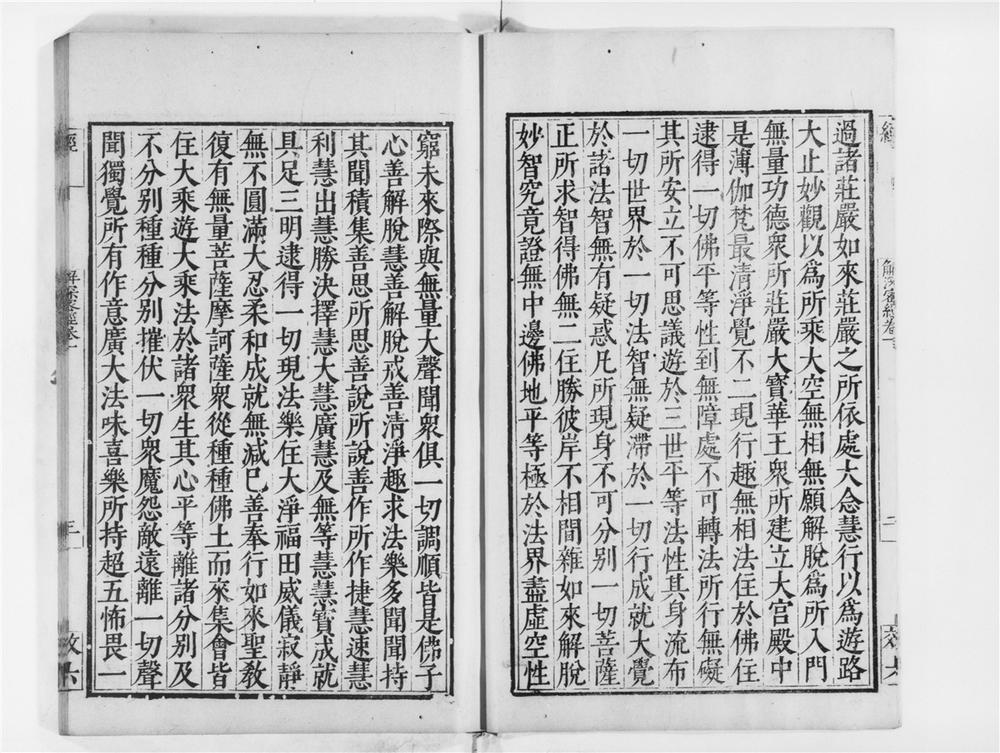 過諸莊嚴如來莊嚴之所依處大念慧行以爲遊路
大止妙觀以爲所乘大空無相無願解脫爲所入門
無量功德衆所莊嚴大寶華王衆所建立大宮殿中
是薄伽梵最清淨覺不二現行趣無相法住於佛住
逮得一切佛平等性到無障處不可轉法所行無礙
其所安立不可思議遊於三世平等法性其身流布
一切世界於一切法智無疑滯於一切行成就大覺
於諸法智無有疑惑凡所現身不可分別一切菩薩
正所求智得佛無二住勝彼岸不相間雜如來解脫
妙智究竟證無中邊佛地平等極於法界盡虛空性
窮未來際與無量大聲聞衆俱一切調順皆是佛子
心善解脫慧善解脫戒善清淨趣求法樂多聞聞持
其聞積集善思所思善說所說善作所作捷慧速慧
利慧出慧勝決擇慧大慧廣慧及無等慧慧寶成就
具足三明逮得一切現法樂住大淨福田威儀寂靜
無不圓滿大忍柔和成就無減已善奉行如來聖教
復有無量菩薩摩訶薩衆從種種佛土而來集會皆
住大乘遊大乘法於諸衆生其心平等離諸分別及
不分別種種分別摧伏一切衆魔怨敵遠離一切聲
聞獨覺所有作意廣大法味喜樂所持超五怖畏一